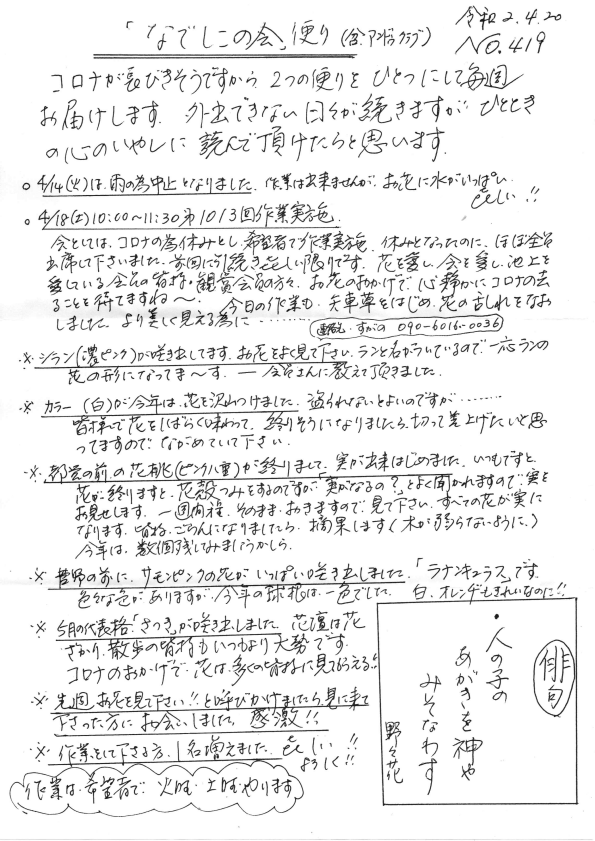 令和2.4.20
「なでしこの会」便り (含.アンドラクラブ) NO.419
コロナが長びきそうですから 2つの便りを ひとつにして毎週
お届けします. 外出できない日々が続きますが ひととき
の心のいやしに 読んで頂けたらと思います.
○ 4/14(火)は、雨の為中止となりました. 作業は出来ませんが、お花に水がいっぱい
うれしい!!
○ 4/18(土)10:00〜11:30 第1013回作業実施.
会としては、コロナの為休みとし、希望者で作業実施. 休みとなったのに、ほぼ全員
出席して下さいました. 前回に引続き うれしい限りです. 花を愛し、会を愛し、池上を
愛している会員の皆様・観賞会員の方々. お花のおかげで、心静かにコロナの去
ることを待てますね〜. 今日の作業も. 矢車草をはじめ、花の乱れをなお
しました. より美しく見える為に‥‥‥‥
連絡先 すがの 090-6016-0036
※ シラン(濃ピンク)が咲き出してます. お花をよく見て下さい. ランと名がついているので一応ランの
花の形になってま〜す. ー 会員さんに教えて頂きました.
※ カラー (白)が今年は、花を沢山つけました. 盗られないとよいのですが‥‥‥‥
皆様で花をしばらく味わって、終りそうになりましたら、切って差上げたいと思
ってますので、ながめていて下さい.
※ 都営の前の花桃(ピンク八重)が終りまして、実が出来はじめました. いつもですと、
花が終りますと、花殻つみをするのですが「実がなるの?」とよく聞かれますので実を
お見せします. 一週間程、そのまま、おきますので、見て下さい. すべての花が実に
なります. 皆様、ごらんになりましたら、摘果します(木が弱らないように.)
今年は、数個残してみましょうかしら.
※ 菅野の前に、サモンピンクの花がいっぱい咲き出しました.「ラナンキュラス」です.
色々な色がありますが、今年の球根は一色でした. 白. オレンヂもきれいなのに!!
※ 5月の代表格.「さつき」が咲き出しました. 花壇は花
ざかり. 散歩の皆様もいつもより大勢です.
コロナのおかげで、花は、多くの皆様に見てもらえる!!
※ 先週、お花を見て下さい!!と呼びかけましたら、見に来て
下さった方に お会いしました. 感激!!
※ 作業をして下さる方、1名増えました. うれしい!!
よろしく!!
作業は、希望者で 火曜・土曜やります
俳句
・人の子の
あがきを神や
みそなわす
野の花